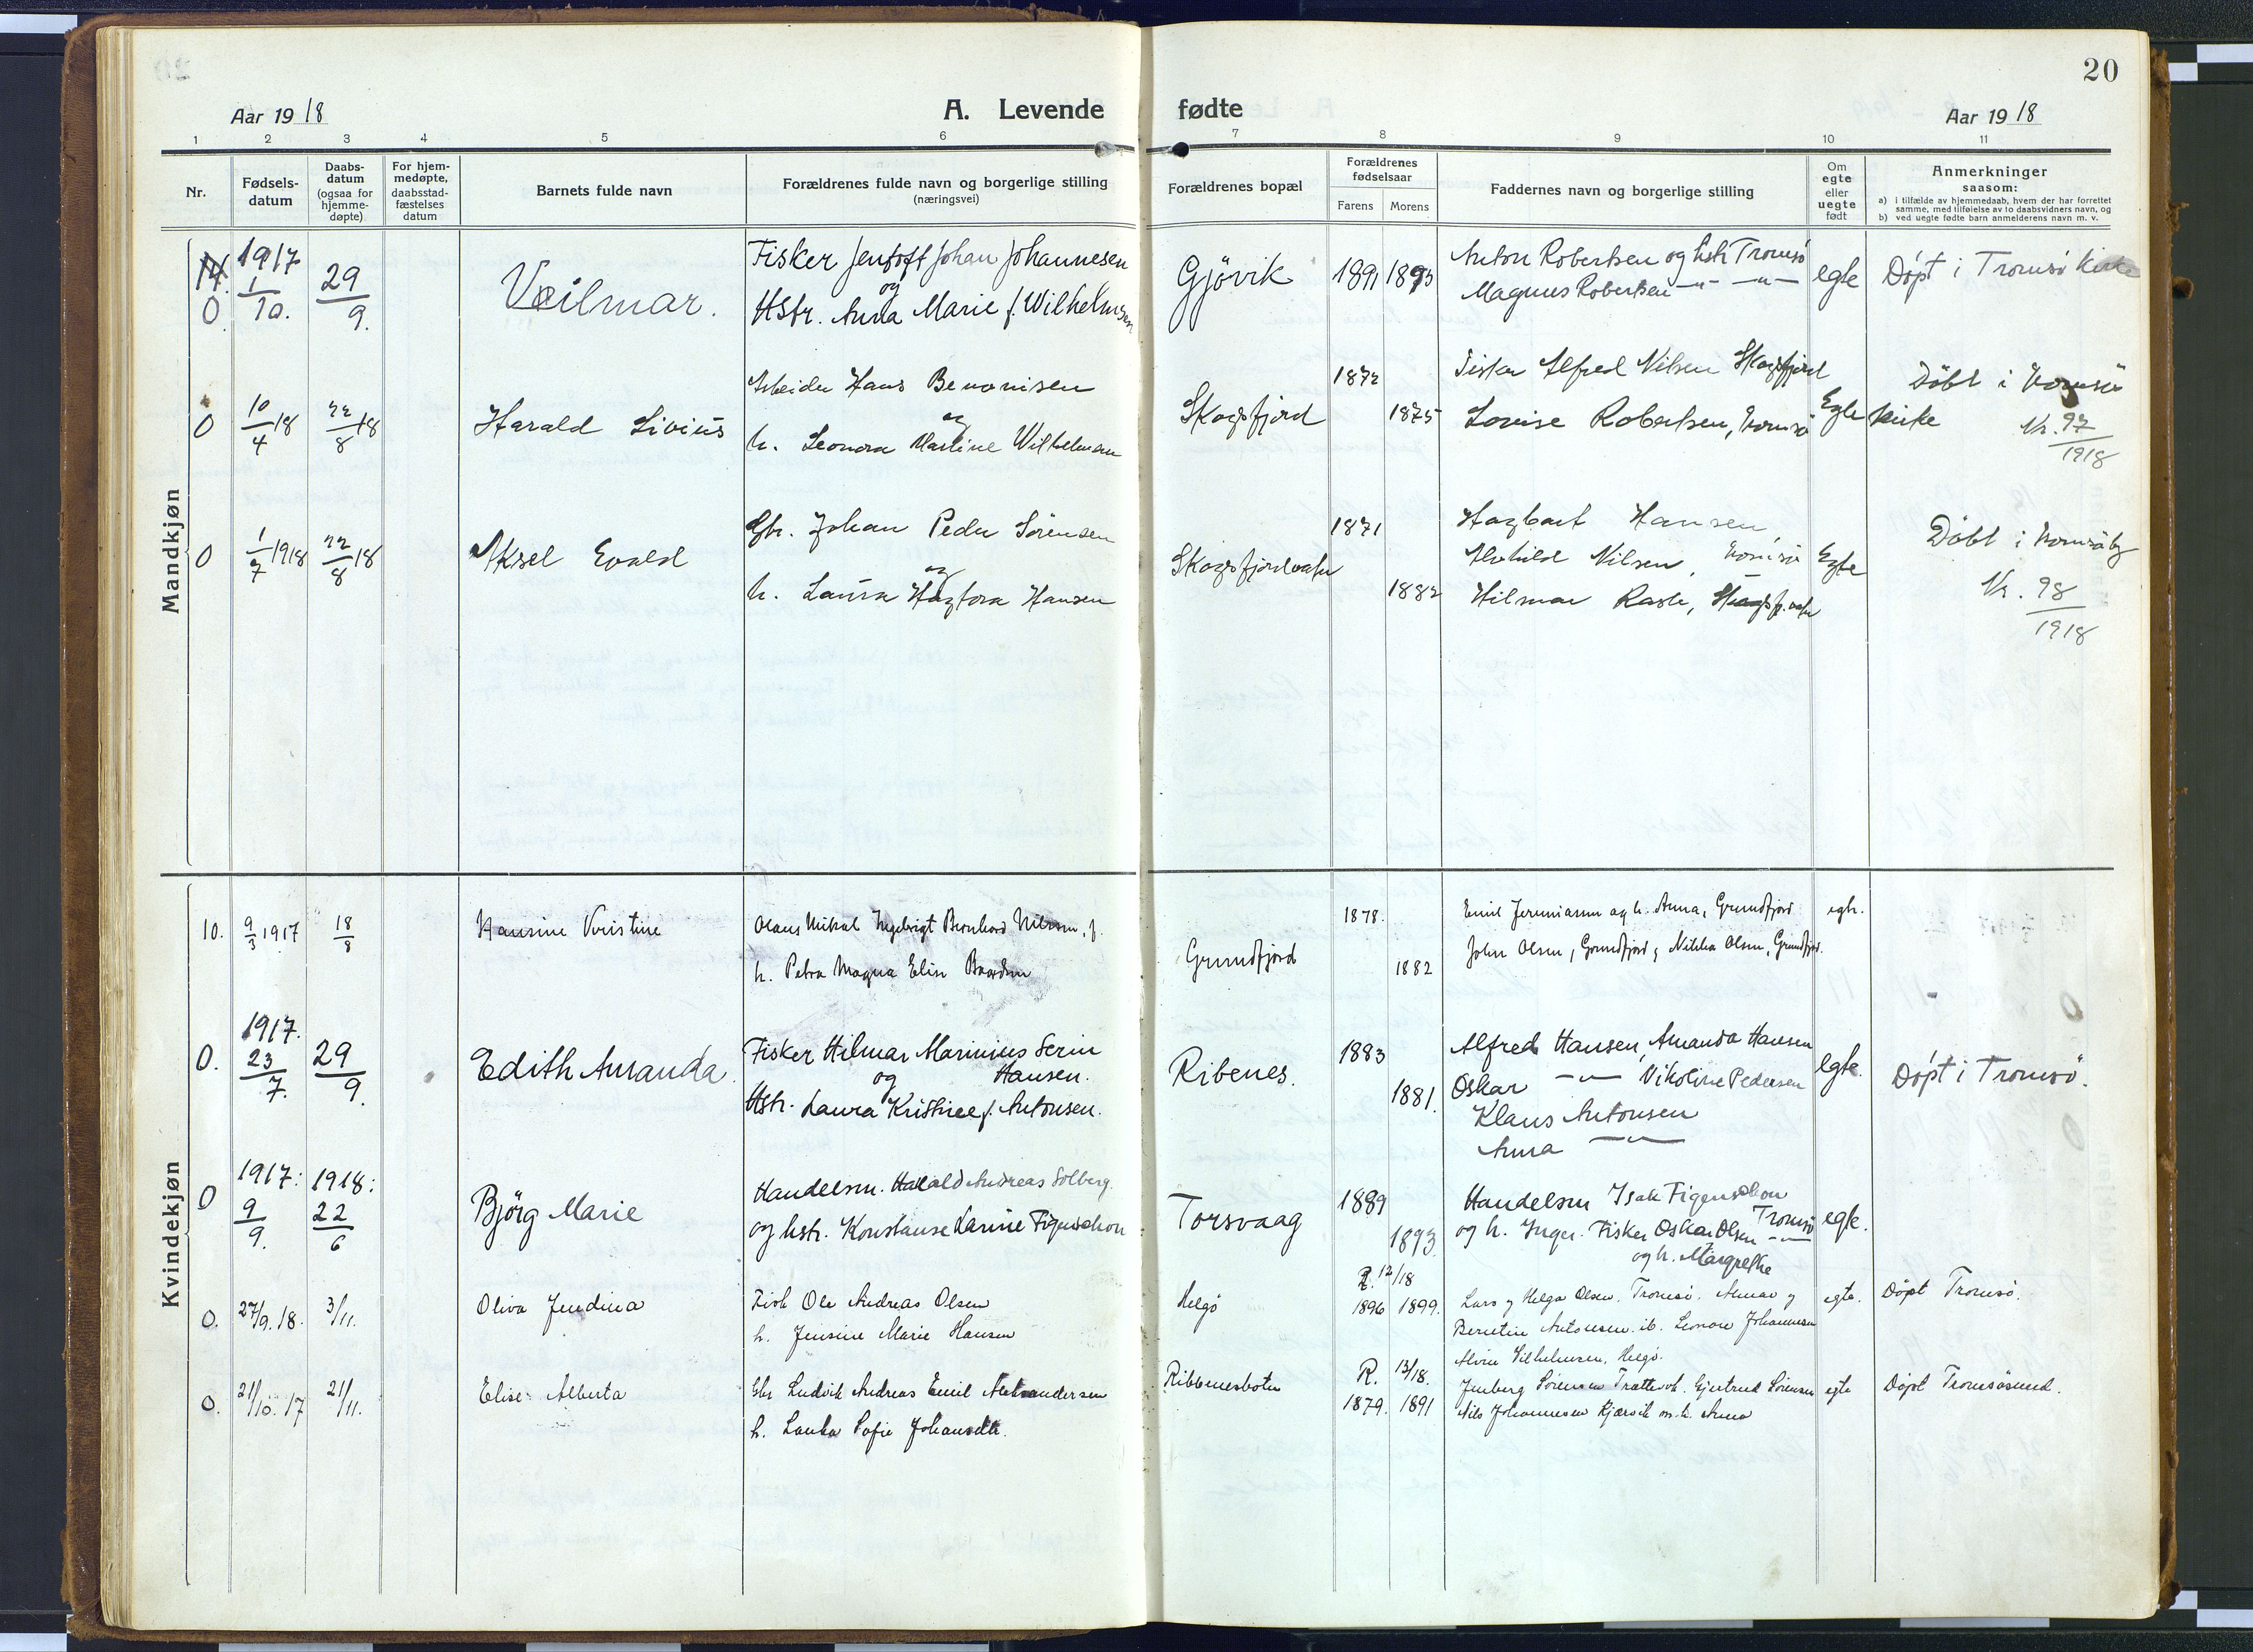 20
Aar 1918
A. Levende fødte
Aar 1918
1 2 3 4 5 6 7 8 9 10 11
Nr.
Fødsels-
datum
Daabs-
datum
(ogsaa for
hjemme-
døpte)
For hjem-
medøpte,
daabsstad-
fæstelses
datum
Barnets fulde navn
Forældrenes fulde navn og borgerlige stilling
(næringsvei)
Forældrenes bopæl
Forældrenes
fødselsaar
Farens Morens
Faddernes navn og borgerlige stilling
Om
egte
eller
uegte
født
Anmerkninger
saasom:
a) i tilfælde av hjemmedaab, hvem der har forrettet
samme, med tilføielse av to daabsvidners navn, og
b) ved uegte fødte barn anmelderens navn m. v.
Mandkjøn
0. 1917 1/10. 29/9. Veilmar.
Fisker Jentoft Johan Johannesen
og
Hstr. Anna Marie f. Wilhelmsen
Gjövik 1891 1893
Anton Robertsen og hstr Tromsö
Magnus Robertsen -"- -"-
egte Döpt i Tromsö Kirke
0 10/4 18 22/8 18 Harald Livius
Arbeider Hans Benonisen
og
h. Leonora Martine Wilhelmsen
Skogsfjord 1872 1875
Fisker Alfred Nilsen Skogsfjord
Louise Robertsen, Tromsö
Egte Döbt i Tromsö
Kirke Nr. 97/1918
0 1/7 1918 22/8 18 Aksel Evald
Gbr. Johan Peder Sörensen
og
h. Laura Hagfora Hansen
Skogsfjordvatn 1871 1882
Hagbart Hansen
Alvhild Nilsen, Tromsö
Hilmar Rask, Skogsfj.vatn
Egte Döbt i Tromsö by
Nr. 98/1918
Kvindekjøn
10. 9/3 1917 18/8 Hansine Kristine
Olaus Mikal Ingebrigt Bernhard Nilsen, f.
h. Petra Magna Elise Baardsen
Grundfjord 1878. 1882
Emil Jeremiassen og h. Anna, Grundfjord
John Olsen, Grundfjord, Nikka Olsen, Grundfjord.
egte.
0. 1917. 23/7. 29/9. Edith Amanda.
Fisker Hilmar Marinius Serin
og Hansen.
Hstr. Laura Kristine f. Antonsen.
Ribenes. 1883 1881.
Alfred Hansen, Amanda Hansen
Oskar -"- Nikoline Pedersen
Klaus Antonsen
Anna -"-
egte. Döpt i Tromsö.
0 1917: 9/9. 1918: 22/6 Björg Marie
Handelsm. Harald Andreas Solberg.
og hstr. Konstanse Larine Figenschou
Torsvaag 1889 1893.
Handelsm Isak Figenschou
Tromsö
og h. Inger. Fisker Oskar Olsen -"-
og h. Margrethe
egte.
0. 27/9. 18. 3/11. Oliva Jendina
Fisk Ole Andreas Olsen
h. Jensine Marie Hansen
Helgö R. 12/18
1896 1899.
Lars og Helga Olsen. Tromsö.
Berntine Antonsen. ib. Leonore Johannesen
Alvin Vilhelmsen, Helgö.
egte. Döpt Tromsö.
0. 21/10. 17 21/11. Elise Alberta
Gbr Ludvik Andreas Emil Aleksandersen
h. Sofie
Ribbenesbotn R. 13/18.
1879. 1891
Sörensen Gjertrud Sörensen
Nils Johannesen Kjærvik m. h. Anna
egte Döpt Tromsösund.